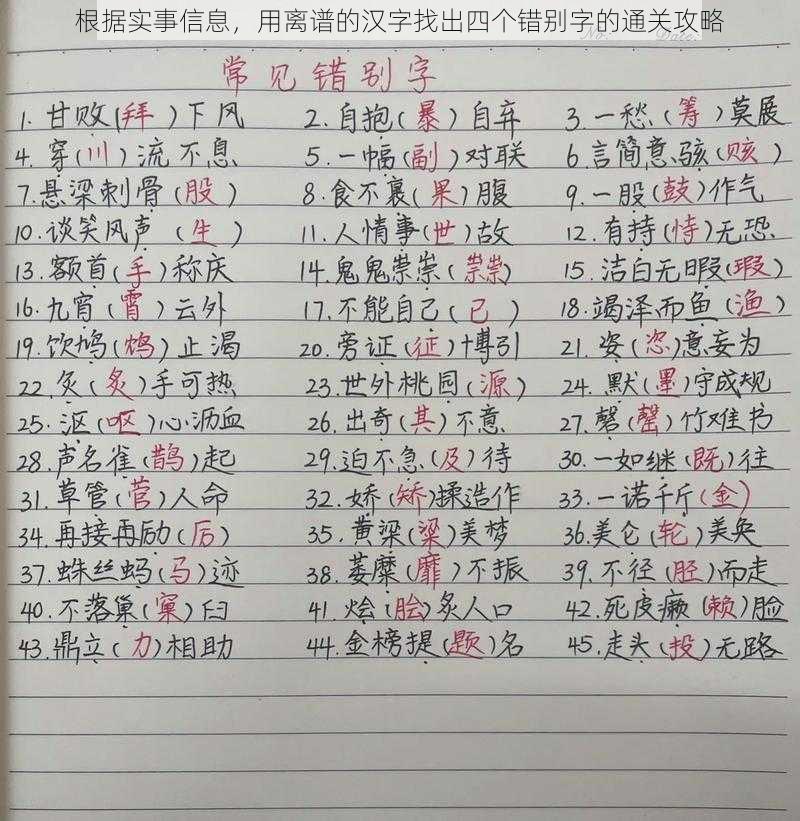 根据实事信息，用离谱的汉字找出四个错别字的通关攻略
No:
Date:
常见错别字
1. 甘败(拜)下风 2. 自抱(暴)自弃 3. 一愁(筹)莫展
4. 穿(川)流不息 5. 一幅(副)对联 6. 言简意骇(赅)
7. 悬梁刺骨(股) 8. 食不裹(果)腹 9. 一股(鼓)作气
10. 谈笑风声(生) 11. 人情事(世)故 12. 有持(恃)无恐
13. 额首(手)称庆 14. 鬼鬼崇崇(祟祟) 15. 洁白无暇(瑕)
16. 九宵(霄)云外 17. 不能自己(已) 18. 竭泽而鱼(渔)
19. 饮鸠(鸩)止渴 20. 旁证(征)博引 21. 姿(恣)意妄为
22. 灸(炙)手可热 23. 世外桃园(源) 24. 默(墨)守成规
25. 沤(呕)心沥血 26. 出奇(其)不意 27. 磬(罄)竹难书
28. 声名雀(鹊)起 29. 迫不急(及)待 30. 一如继(既)往
31. 草管(菅)人命 32. 娇(矫)揉造作 33. 一诺千斤(金)
34. 再接再励(厉) 35. 黄梁(粱)美梦 36. 美仑(轮)美奂
37. 蛛丝蚂(马)迹 38. 萎糜(靡)不振 39. 不径(胫)而走
40. 不落巢(窠)臼 41. 烩(脍)炙人口 42. 死皮癞(赖)脸
43. 鼎立(力)相助 44. 金榜提(题)名 45. 走头(投)无路